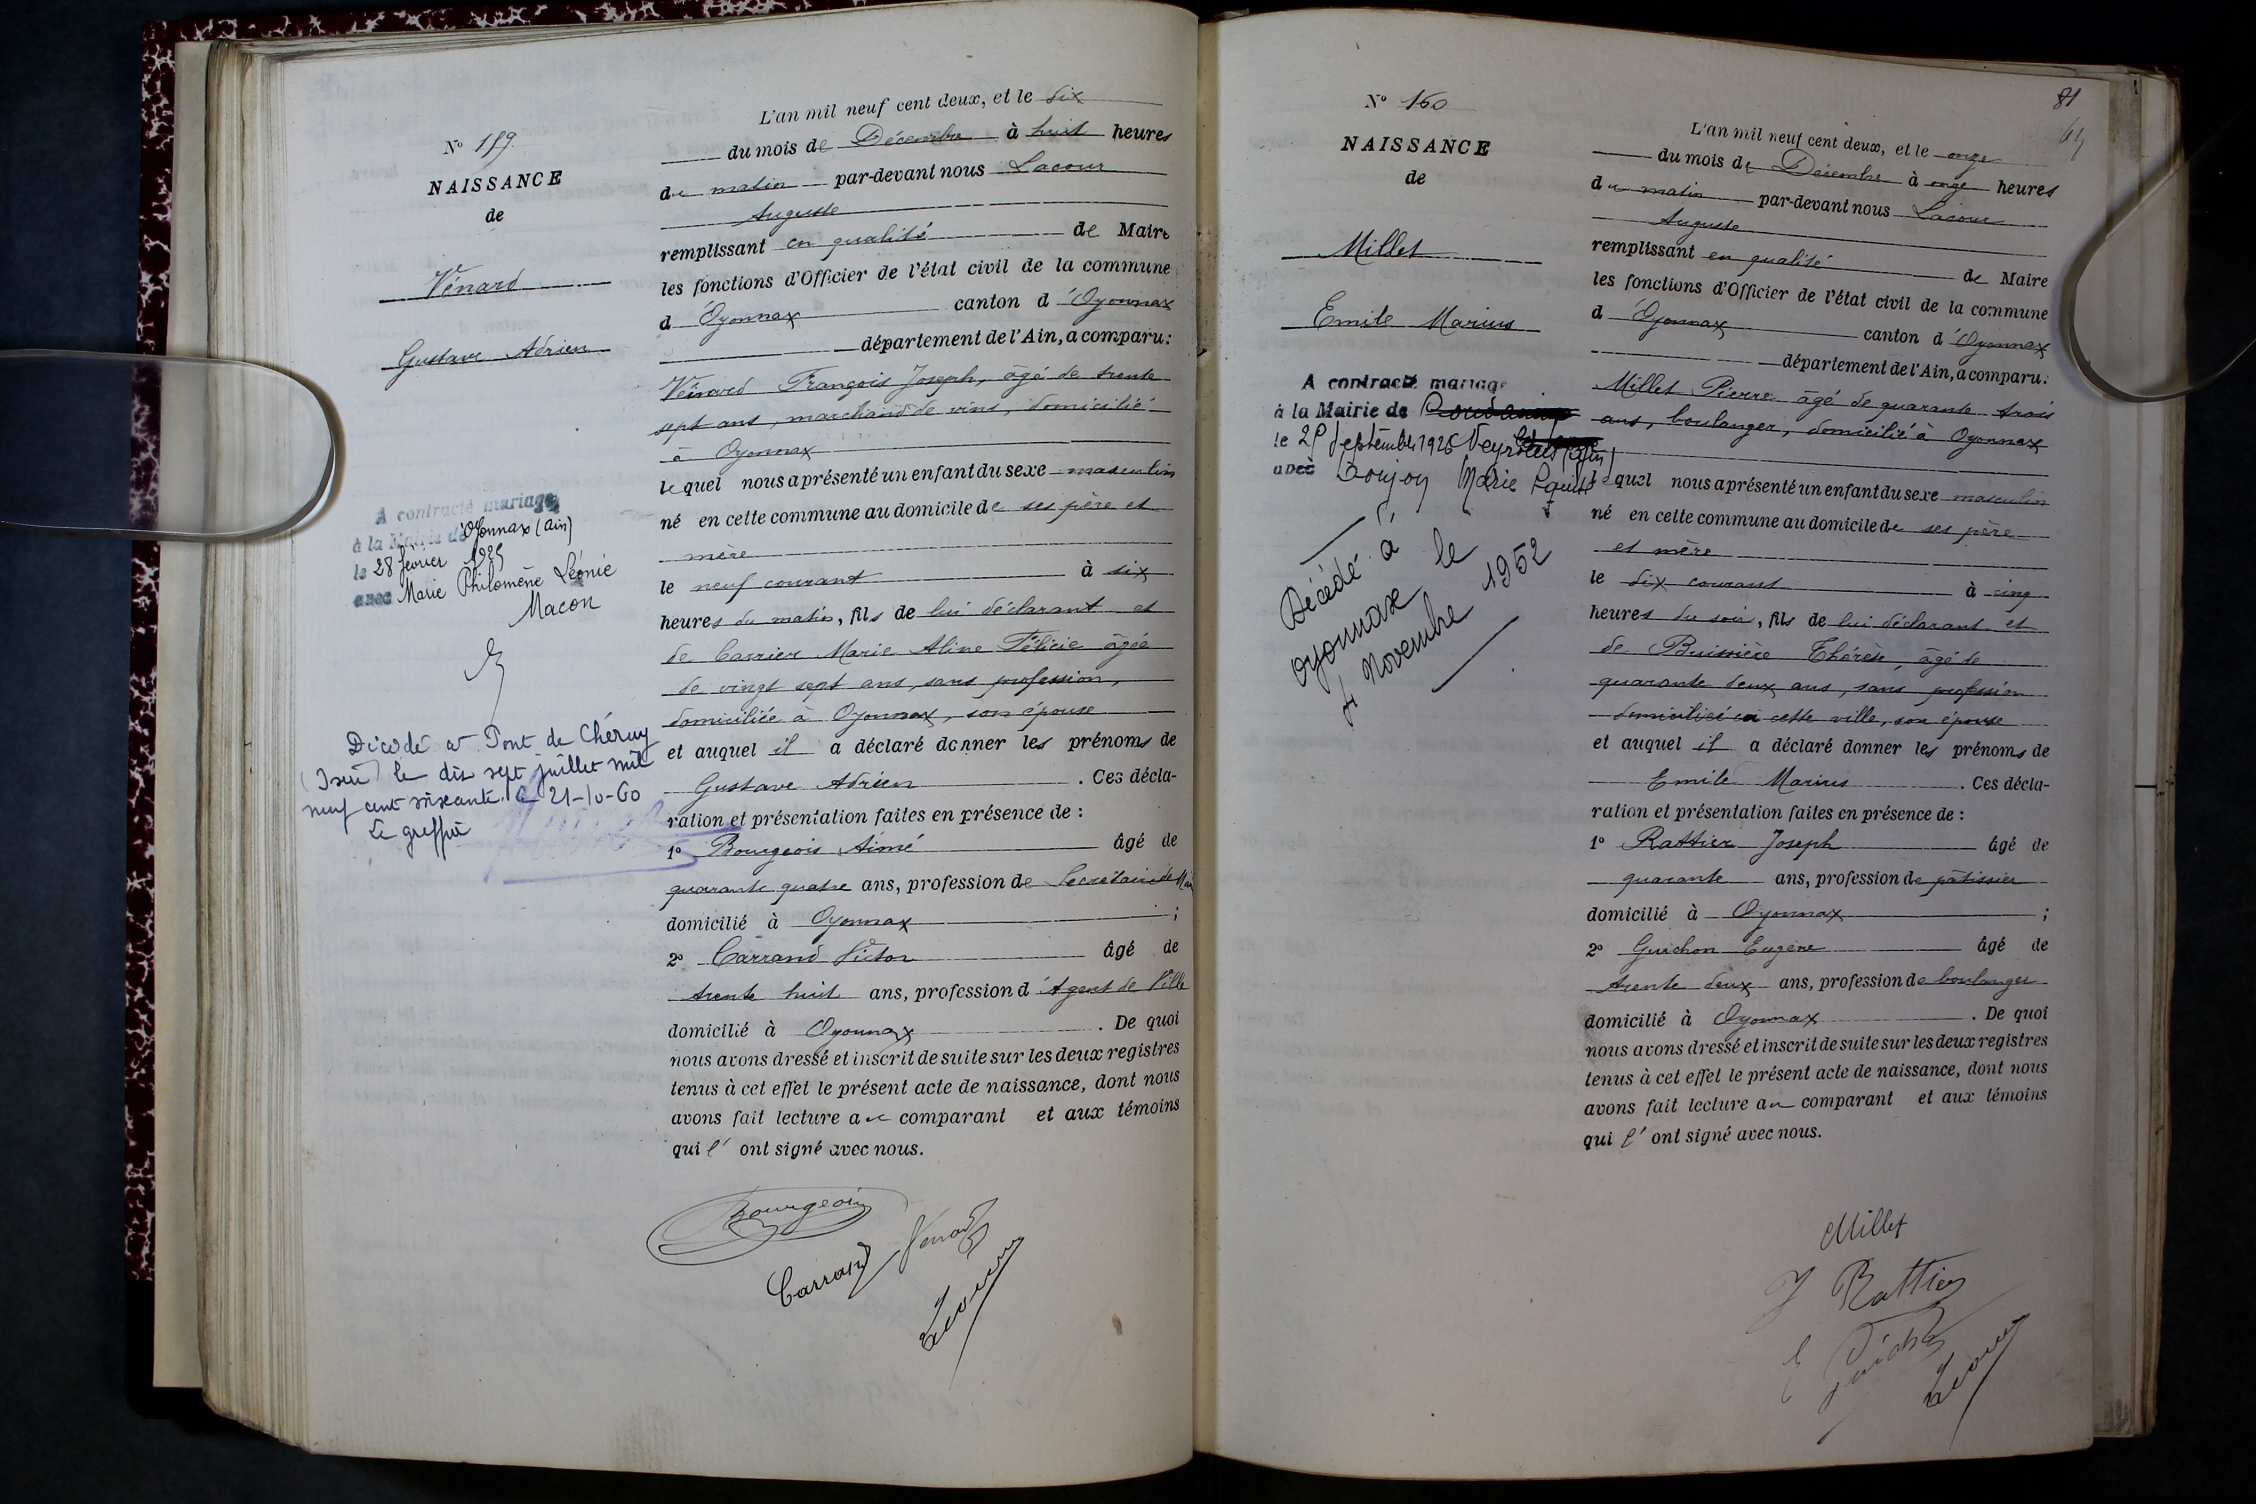 N° 159
NAISSANCE
de
Vénard
Gustave Adrien
A contracté mariage
à la Mairie de Oyonnax (Ain)
le 28 février 1925
avec Marie Philomène Léonie
Macon
Décédé à Pont de Chéruy
(Isère) le dix sept juillet mil
neuf cent soixante. Le 21-10-60
Le greffier
L'an mil neuf cent deux, et le dix
du mois de Décembre à huit heures
du matin par-devant nous Lacour
Auguste
remplissant en qualité de Maire
les fonctions d'Officier de l'état civil de la commune
d'Oyonnax canton d'Oyonnax
département de l'Ain, a comparu:
Vénard François Joseph, âgé de trente
sept ans, marchand de vins, domicilié
à Oyonnax
lequel nous a présenté un enfant du sexe masculin
né en cette commune au domicile de ses père et
mère
le neuf courant à six
heures du matin, fils de lui déclarant et
de Carrier Marie Aline Félicie âgée
de vingt sept ans, sans profession,
domiciliée à Oyonnax, son épouse
et auquel il a déclaré donner les prénoms de
Gustave Adrien . Ces décla-
ration et présentation faites en présence de :
1° Bourgeois Aimé âgé de
quarante quatre ans, profession de Secrétaire de Mai
domicilié à Oyonnax ;
2° Carrand Victor âgé de
trente huit ans, profession d'Agent de Ville
domicilié à Oyonnax . De quoi
nous avons dressé et inscrit de suite sur les deux registres
tenus à cet effet le présent acte de naissance, dont nous
avons fait lecture au comparant et aux témoins
qui l'ont signé avec nous.
Bourgeois
Carrand Venard
Lacour
81
N° 160
NAISSANCE
de
Millet
Emile Marius
A contracté mariage
à la Mairie de
le 25 Septembre 1926 Veyziat (Ain)
avec Goujon Marie Louise
Décédé à
Oyonnax le
4 Novembre 1952
L'an mil neuf cent deux, et le onze
du mois de Décembre à onze heures
du matin par-devant nous Lacour
Auguste
remplissant en qualité de Maire
les fonctions d'Officier de l'état civil de la commune
d'Oyonnax canton d'Oyonnax
département de l'Ain, a comparu:
Millet Pierre âgé de quarante trois
ans, boulanger, domicilié à Oyonnax
lequel nous a présenté un enfant du sexe masculin
né en cette commune au domicile de ses père
et mère
le dix courant à cinq
heures du soir, fils de lui déclarant et
de Buissière Thérèse, âgé de
quarante deux ans, sans profession
domicilié en cette ville, son épouse
et auquel il a déclaré donner les prénoms de
Emile Marius . Ces décla-
ration et présentation faites en présence de :
1° Rattier Joseph âgé de
quarante ans, profession de pâtissier
domicilié à Oyonnax ;
2° Guichon Eugène âgé de
trente deux ans, profession de boulanger
domicilié à Oyonnax . De quoi
nous avons dressé et inscrit de suite sur les deux registres
tenus à cet effet le présent acte de naissance, dont nous
avons fait lecture au comparant et aux témoins
qui l'ont signé avec nous.
Millet
J Rattier
E Guichon
Lacour